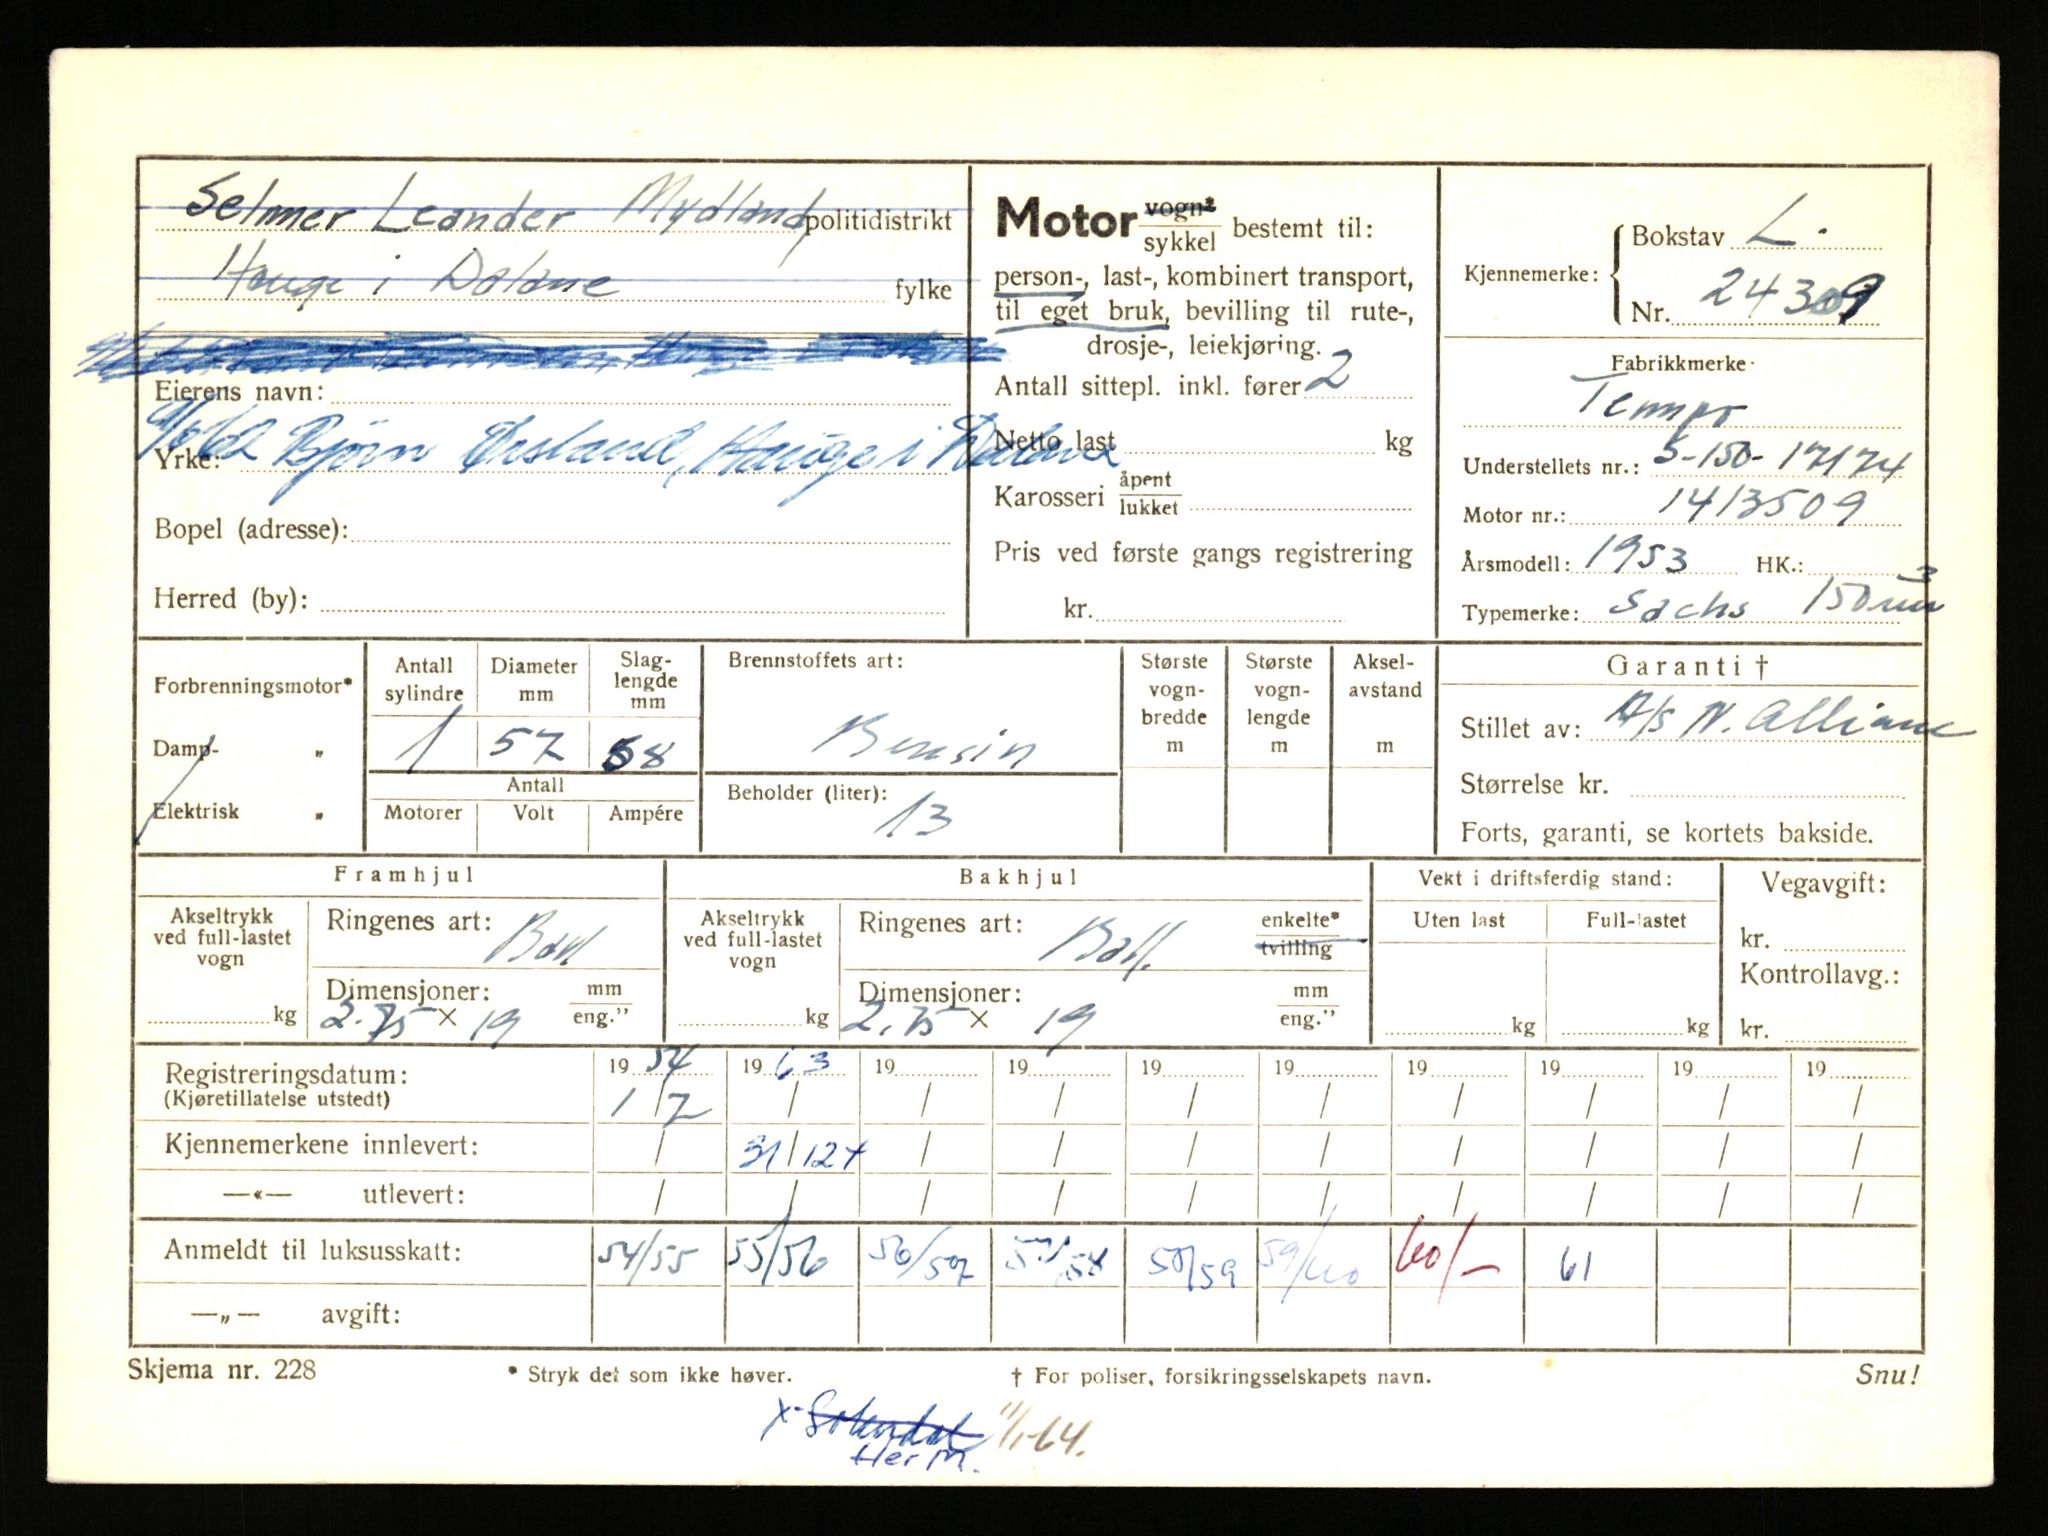 Selmer Leander Mydland politidistrikt
Hauge i Dalane fylke
Eierens navn:
Bjørn Ørsland, Hauge i Dalane
Yrke:
Bopel (adresse):
Herred (by):
Motor vogn* sykkel bestemt til:
person-, last-, kombinert transport,
til eget bruk, bevilling til rute-,
drosje-, leiekjøring.
Antall sittepl. inkl. fører 2
Netto last kg
Karosseri åpent lukket
Pris ved første gangs registrering
kr.
Kjennemerke: Bokstav L.
Nr. 24309
Fabrikkmerke
Tempo
Understellets nr.: 5-150-17174
Motor nr.: 1413509
Årsmodell: 1953 HK.:
Typemerke: Sachs 150 cm3
Forbrenningsmotor*
Damp- „
Elektrisk „
Antall sylindre Diameter mm Slag-lengde mm
1 57 58
Antall
Motorer Volt Ampére
Brennstoffets art:
Bensin
Beholder (liter):
13
Største vogn-bredde m
Største vogn-lengde m
Aksel-avstand m
Garanti †
Stillet av: A/S N. Alliance
Størrelse kr.
Forts, garanti, se kortets bakside.
Framhjul
Akseltrykk ved full-lastet vogn
kg
Ringenes art: Ball
Dimensjoner: mm eng.”
2.75 × 19
Bakhjul
Akseltrykk ved full-lastet vogn
kg
Ringenes art: Ball. enkelte* tvilling
Dimensjoner: mm eng.”
2.75 × 19
Vekt i driftsferdig stand:
Uten last Full-lastet
kg kg
Vegavgift:
kr.
Kontrollavg.:
kr.
Registreringsdatum: 19 54 19 63 19 19 19 19 19 19 19 19
(Kjøretillatelse utstedt) 1/7 / / / / / / / / /
Kjennemerkene innlevert: / 31/12 + / / / / / / / /
—«— utlevert: / / / / / / / / / /
Anmeldt til luksusskatt: 54/55 55/56 56/57 57/58 58/59 59/60 60/- 61
—„— avgift:
Skjema nr. 228 * Stryk det som ikke høver. † For poliser, forsikringsselskapets navn. Snu!
x Sokndal 11/1-64.
Her m.